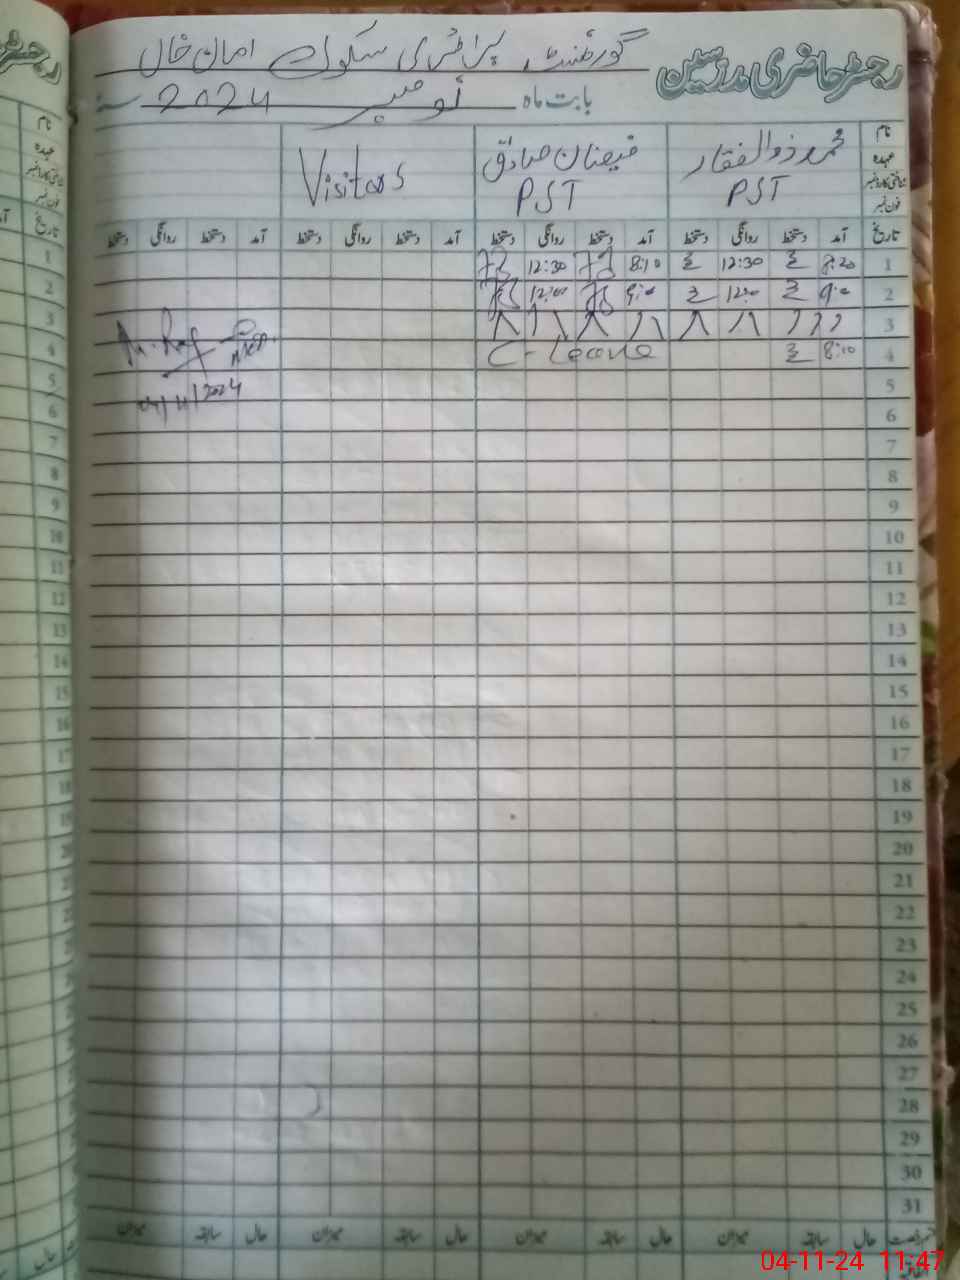 رجسٹر حاضری مدرسین
گورنمنٹ پرائمری سکول امان خال
بابت ماہ نومبر 2024 سنہ
نام
عہدہ
شناختی کارڈ نمبر
فون نمبر
محمد ذوالفقار
PST
فیضان صادق
PST
Visitors
تاریخ آمد دستخط روانگی دستخط آمد دستخط روانگی دستخط آمد دستخط روانگی دستخط آمد دستخط روانگی دستخط
1 8:20 12:30 8:10 12:30
2 9:00 12:00 9:00 12:00
3
4 8:10 C-Leave
04/11/2024
5
6
7
8
9
10
11
12
13
14
15
16
17
18
19
20
21
22
23
24
25
26
27
28
29
30
31
حال سابقہ میزان حال سابقہ میزان حال سابقہ میزان حال سابقہ میزان
04-11-24 11:47